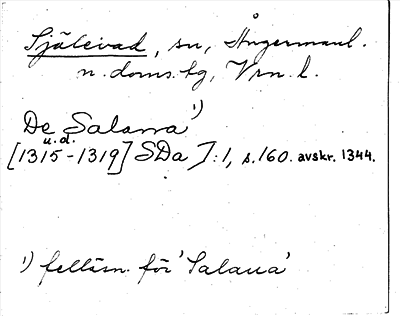 Själevad, sn, Ångermanl.
n. doms. hg, Vrn. l.
De Salarra ¹)
u. d.
[1315-1319] SDa I:1, s.160. avskr. 1344.
¹) felläsn. för 'Salaua'